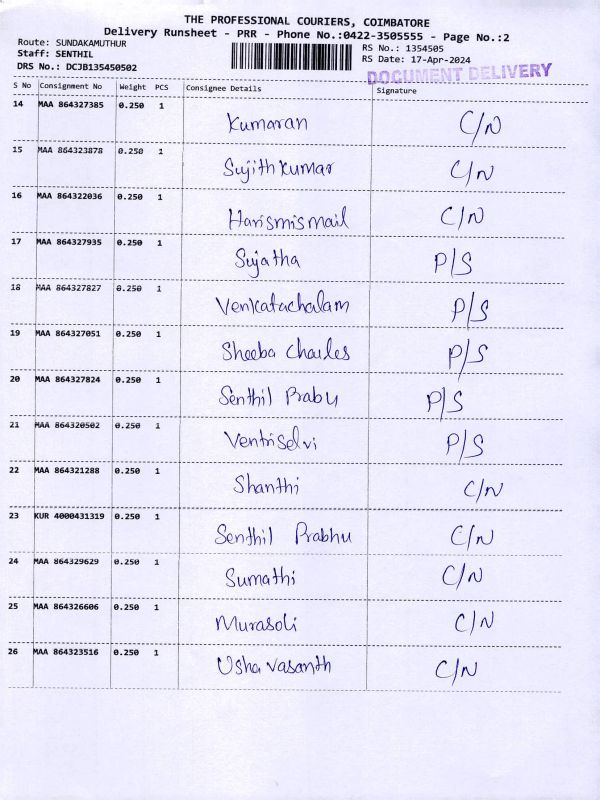 THE PROFESSIONAL COURIERS, COIMBATORE
Delivery Runsheet - PRR - Phone No.:0422-3505555 - Page No.:2
Route: SUNDAKAMUTHUR RS No.: 1354505
Staff: SENTHIL RS Date: 17-Apr-2024
DRS No.: DCJB135450502 DOCUMENT DELIVERY
S No Consignment No Weight PCS Consignee Details Signature
14 MAA 864327385 0.250 1 Kumaran C/N
15 MAA 864323878 0.250 1 Sujith Kumar C/N
16 MAA 864322036 0.250 1 Harismismail C/N
17 MAA 864327935 0.250 1 Sujatha P/S
18 MAA 864327827 0.250 1 Venkatachalam P/S
19 MAA 864327051 0.250 1 Sheeba Charles P/S
20 MAA 864327824 0.250 1 Senthil Prabu P/S
21 MAA 864320502 0.250 1 Ventriselvi P/S
22 MAA 864321288 0.250 1 Shanthi C/N
23 KUR 4000431319 0.250 1 Senthil Prabhu C/N
24 MAA 864329629 0.250 1 Sumathi C/N
25 MAA 864326606 0.250 1 Murasoli C/N
26 MAA 864323516 0.250 1 Usha Vasanth C/N